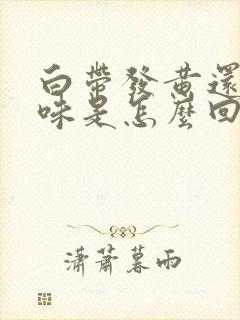 白帶發黃還
味是怎麼回
瀟蕭暮雨